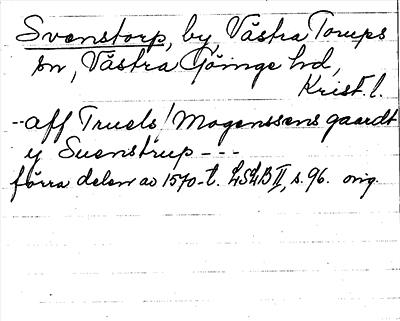 Svenstorp, by, Västra Torups
sn, Västra Göinge hd,
Krist. l.
-- aff Truels! Mogenssens gaardt
y Suenstrup ---
förra delen av 1570-t. LSLB II, s. 96. orig.